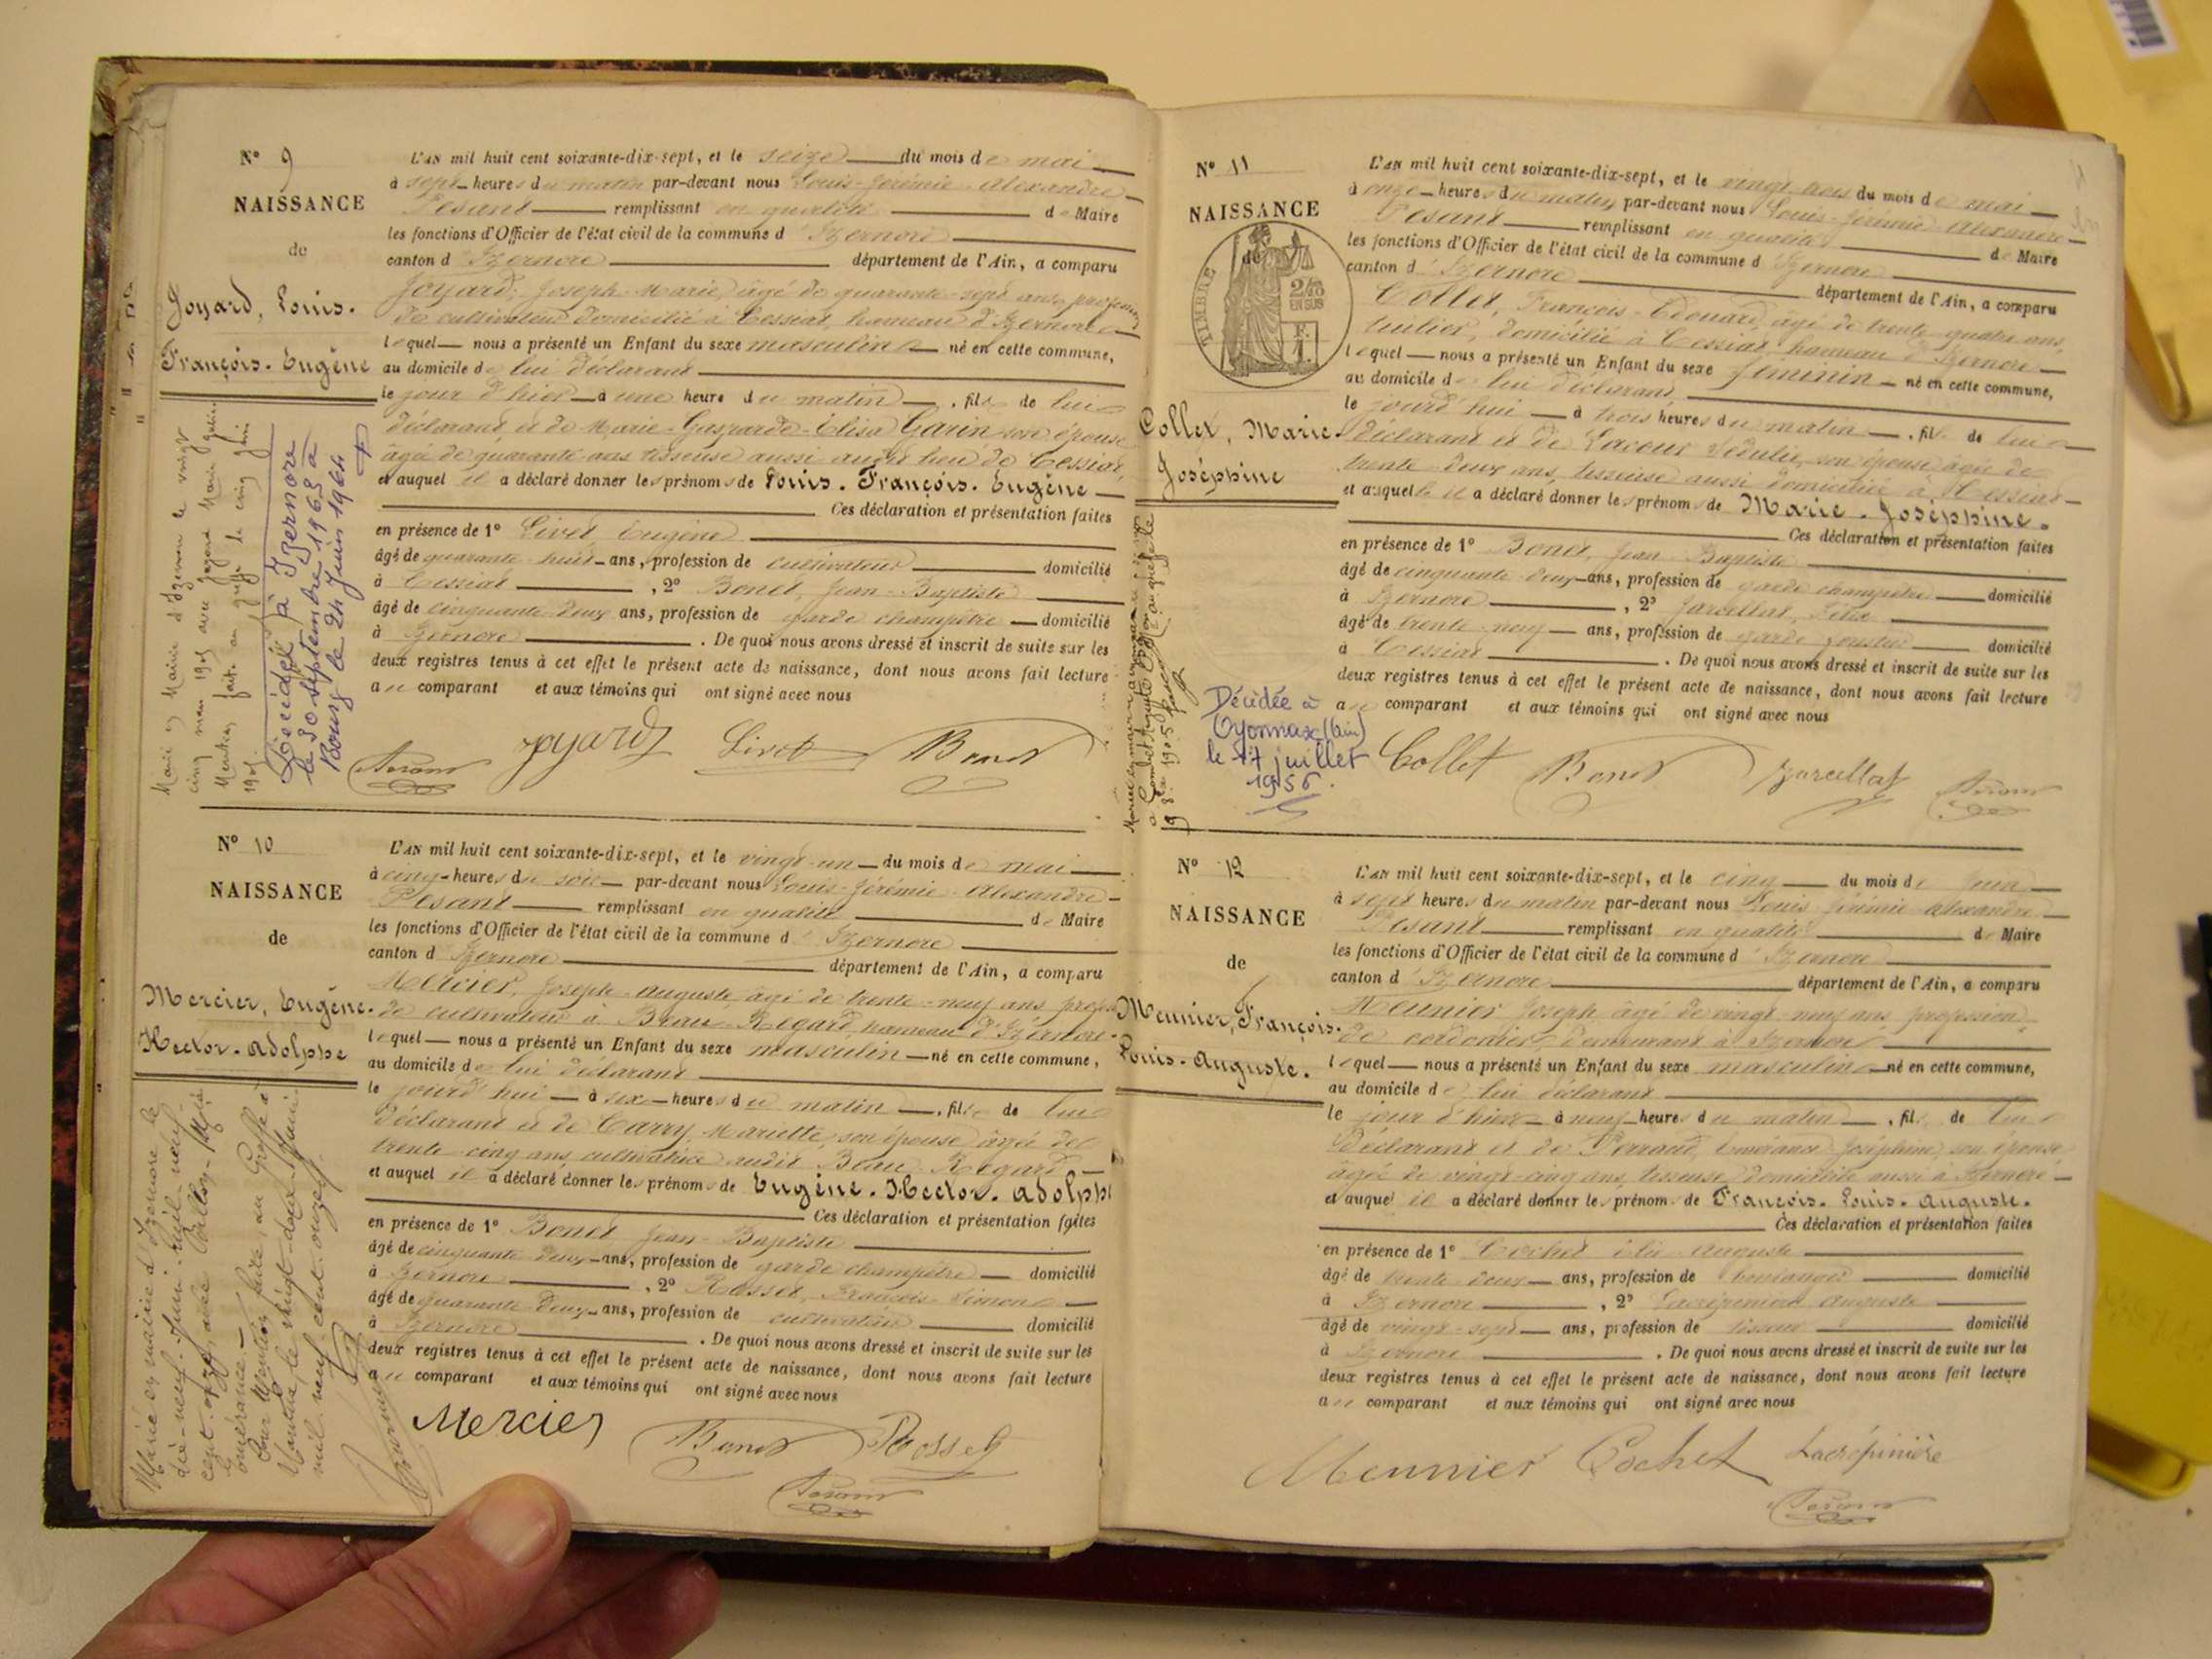 N° 9
NAISSANCE
de
Joyard, Louis.
François. Eugène
L'AN mil huit cent soixante-dix-sept, et le seize du mois de mai
à sept heures du matin par-devant nous Louis-Jérémie-Alexandre
Pesant remplissant en qualité de Maire
les fonctions d'Officier de l'état civil de la commune d'Izernore
canton d'Izernore département de l'Ain, a comparu
Joyard, Joseph-Marie, âgé de quarante-sept ans, profession
de cultivateur domicilié à Cessiat, hameau d'Izernore
lequel nous a présenté un Enfant du sexe masculin né en cette commune,
au domicile de lui déclarant
le jour d'hier à une heure du matin, fils de lui
déclarant et de Marie-Gasparde-Élisa Garin son épouse
âgée de quarante ans tisseuse aussi audit lieu de Cessiat
et auquel il a déclaré donner les prénoms de Louis. François. Eugène
Ces déclaration et présentation faites
en présence de 1° Livet Eugène
âgé de quarante-huit ans, profession de cultivateur domicilié
à Cessiat, 2° Bonet, Jean-Baptiste
âgé de cinquante-deux ans, profession de garde champêtre domicilié
à Izernore. De quoi nous avons dressé et inscrit de suite sur les
deux registres tenus à cet effet le présent acte de naissance, dont nous avons fait lecture
au comparant et aux témoins qui ont signé avec nous
Joyard Livet Bonet
Pesant
Décidé à Izernore
le 30 septembre 1963
Bourg le 24 Juin 1964
N° 10
NAISSANCE
de
Mercier, Eugène.
Hector-Adolphe
L'AN mil huit cent soixante-dix-sept, et le vingt-un du mois de mai
à cinq heures du soir par-devant nous Louis-Jérémie-Alexandre
Pesant remplissant en qualité de Maire
les fonctions d'Officier de l'état civil de la commune d'Izernore
canton d'Izernore département de l'Ain, a comparu
Mercier, Joseph-Auguste âgé de trente-neuf ans profession
de cultivateur à Beau-Regard, hameau d'Izernore
lequel nous a présenté un Enfant du sexe masculin né en cette commune,
au domicile de lui déclarant
le jourd'hui à six heures du matin, fils de lui
déclarant et de Carry, Mariette, son épouse âgée de
trente-cinq ans cultivatrice audit Beau-Regard
et auquel il a déclaré donner les prénoms de Eugène. Hector. Adolphe
Ces déclaration et présentation faites
en présence de 1° Bonet Jean-Baptiste
âgé de cinquante-deux ans, profession de garde champêtre domicilié
à Izernore, 2° Rosset, François-Simon
âgé de quarante-deux ans, profession de cultivateur domicilié
à Izernore. De quoi nous avons dressé et inscrit de suite sur les
deux registres tenus à cet effet le présent acte de naissance, dont nous avons fait lecture
au comparant et aux témoins qui ont signé avec nous
Mercier Bonet Rosset
Pesant
Marié en mairie d'Izernore le
dix-neuf-Juin-mil-neuf-
cent-onze, avec
Pour Mention faite au Greffe à
Nantua, le vingt-deux Juin
mil neuf cent onze
N° 11
NAISSANCE
de
TIMBRE
2/10
EN SUS
Collet, Marie.
Joséphine
L'AN mil huit cent soixante-dix-sept, et le vingt-trois du mois de mai
à onze heures du matin, par-devant nous Louis-Jérémie-Alexandre
Pesant remplissant en qualité de Maire
les fonctions d'Officier de l'état civil de la commune d'Izernore
canton d'Izernore département de l'Ain, a comparu
Collet, François-Edouard, âgé de trente-quatre ans,
tuilier, domicilié à Cessiat, hameau d'Izernore
lequel nous a présenté un Enfant du sexe féminin né en cette commune,
au domicile de lui déclarant
le jourd'hui à trois heures du matin, fil de lui
déclarant et de Lacour Sédulie, son épouse âgée de
trente-deux ans, tisseuse aussi domiciliée à Cessiat
et auquel il a déclaré donner les prénoms de Marie. Joséphine.
Ces déclaration et présentation faites
en présence de 1° Bonet, Jean-Baptiste
âgé de cinquante-deux ans, profession de garde champêtre domicilié
à Izernore, 2° Jarcellat, Félix
âgé de trente-neuf ans, profession de garde forestier domicilié
à Cessiat. De quoi nous avons dressé et inscrit de suite sur les
deux registres tenus à cet effet le présent acte de naissance, dont nous avons fait lecture
au comparant et aux témoins qui ont signé avec nous
Collet Bonet Jarcellat
Pesant
Décédée à
Oyonnax (Ain)
le 17 juillet
1956.
N° 12
NAISSANCE
de
Meunier, François.
Louis-Auguste.
L'AN mil huit cent soixante-dix-sept, et le cinq du mois de juin
à sept heures du matin par-devant nous Louis-Jérémie-Alexandre
Pesant remplissant en qualité de Maire
les fonctions d'Officier de l'état civil de la commune d'Izernore
canton d'Izernore département de l'Ain, a comparu
Meunier Joseph âgé de vingt-neuf ans, profession
de cordonnier, demeurant à Izernore
lequel nous a présenté un Enfant du sexe masculin né en cette commune,
au domicile de lui déclarant
le jour d'hier à neuf heures du matin, fils de lui
déclarant et de Perraud, Joséphine, son épouse
âgée de vingt-cinq ans, tisseuse domiciliée aussi à Izernore
et auquel il a déclaré donner les prénoms de François. Louis. Auguste.
Ces déclaration et présentation faites
en présence de 1° Cochet Auguste
âgé de trente-deux ans, profession de boulanger domicilié
à Izernore, 2° Lacrépinière Auguste
âgé de vingt-sept ans, profession de tisseur domicilié
à Izernore. De quoi nous avons dressé et inscrit de suite sur les
deux registres tenus à cet effet le présent acte de naissance, dont nous avons fait lecture
au comparant et aux témoins qui ont signé avec nous
Meunier Cochet Lacrépinière
Pesant